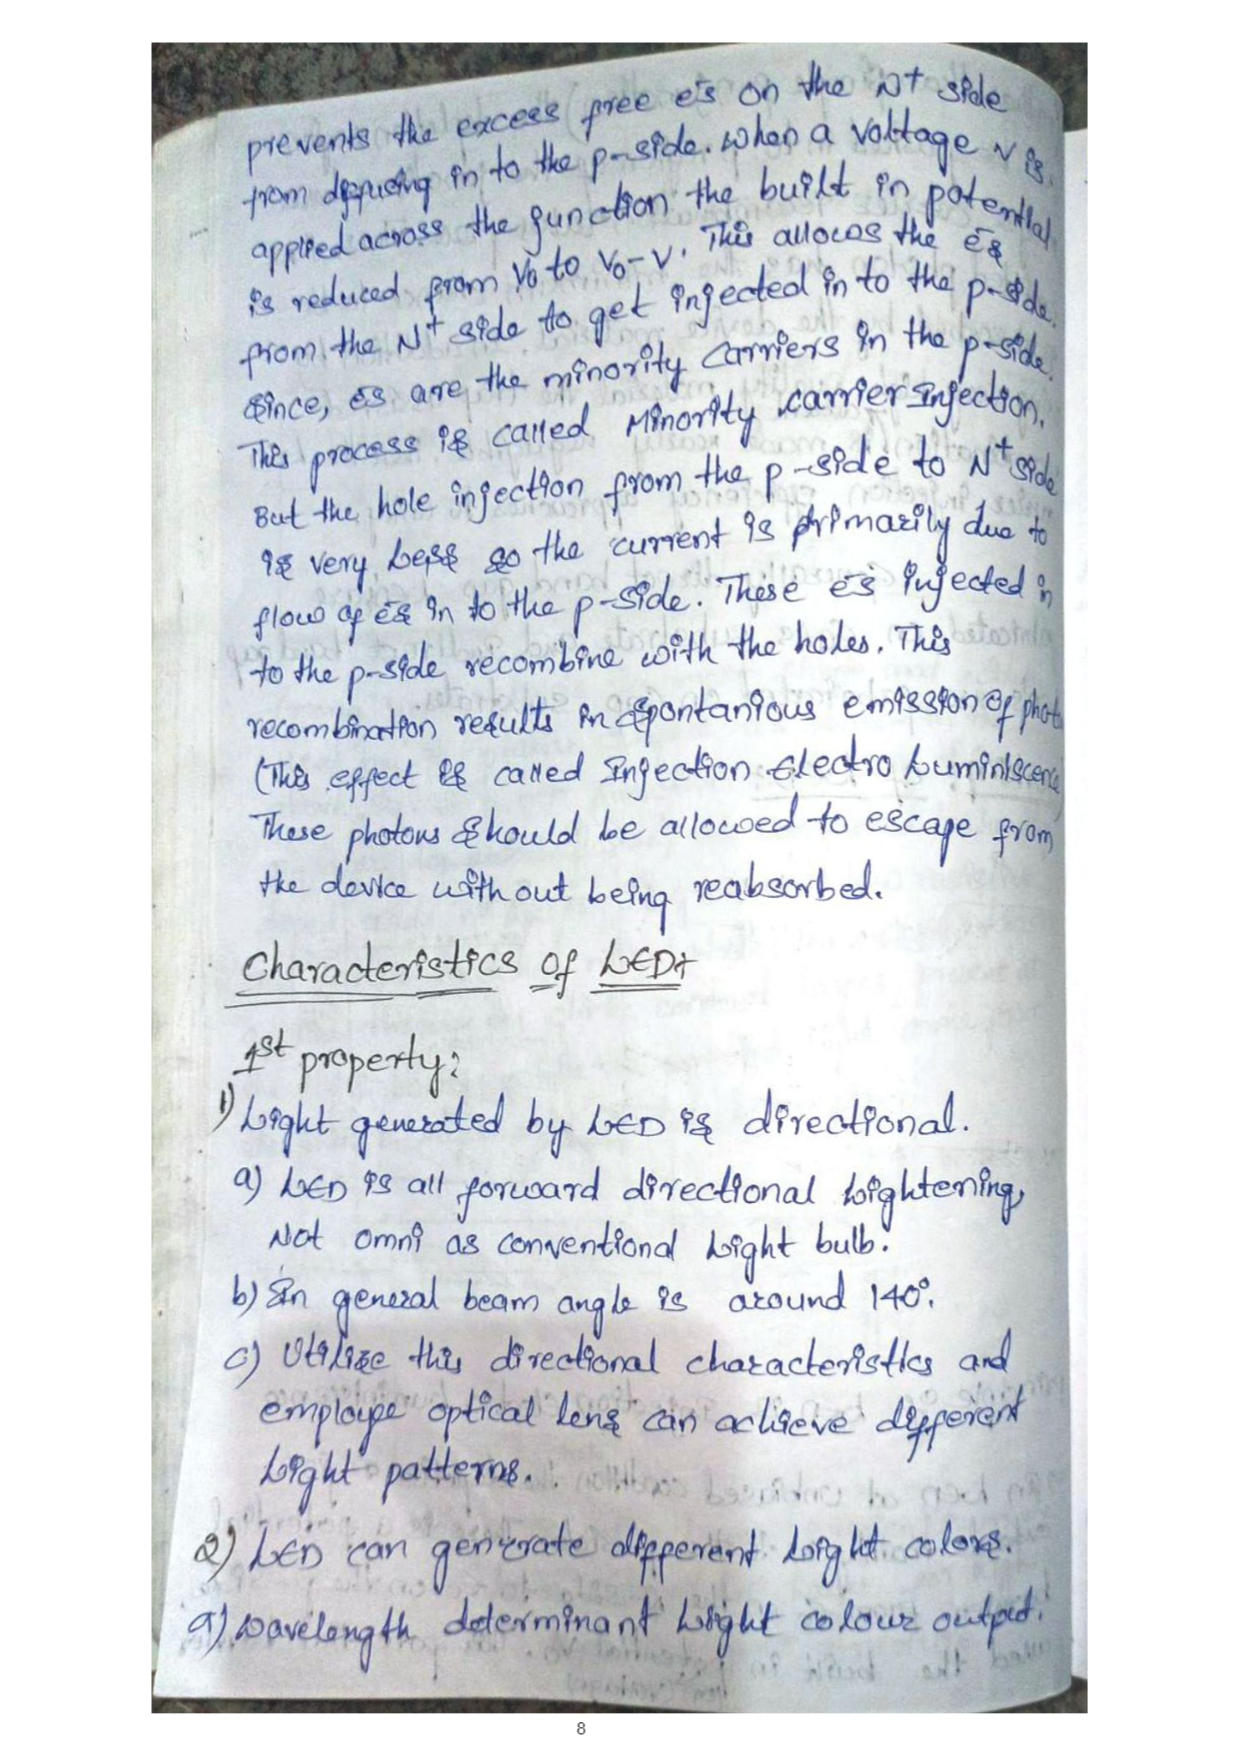 prevents the excess free e⁻s on the N+ side
from diffusing in to the p-side. when a voltage v is
applied across the junction the built in potential
is reduced from V0 to V0-V. This allows the e⁻s
from the N+ side to get injected in to the p-side.
since, e⁻s are the minority carriers in the p-side.
This process is called Minority carrier Injection.
But the hole injection from the p-side to N+ side
is very Less so the current is primarily due to
flow of e⁻s in to the p-side. These e⁻s injected in
to the p-side recombine with the holes. This
recombination results in spontanious emission of phot
(This effect is called Injection Electro Luminiscence
These photons should be allowed to escape from
the device without being reabsorbed.
Characteristics of LED:
1st property:
1) Light generated by LED is directional.
a) LED is all forward directional Lightening,
Not omni as conventional Light bulb.
b) In general beam angle is around 140°.
c) Utilize this directional characteristics and
employe optical lens can achieve different
Light patterns.
2) LED can generate different Light colors.
a) wavelength determinant Light colour output.
8